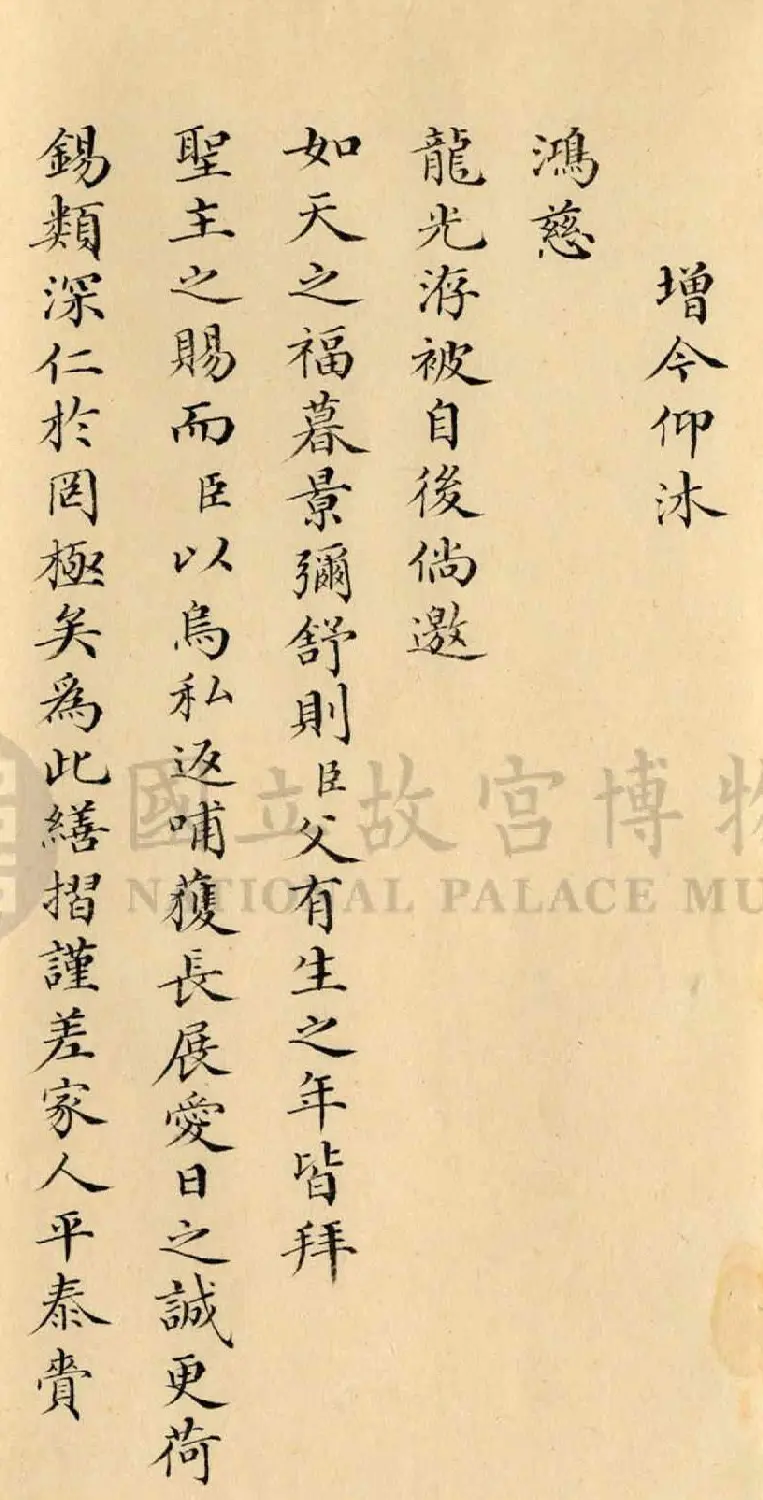 增今仰沐
鴻慈
龍光洊被自後倘邀
如天之福暮景彌舒則臣父有生之年皆拜
聖主之賜而臣以烏私返哺獲長展愛日之誠更荷
錫類深仁於罔極矣為此繕摺謹差家人平泰賷
國立故宮博物
NATIONAL PALACE MU